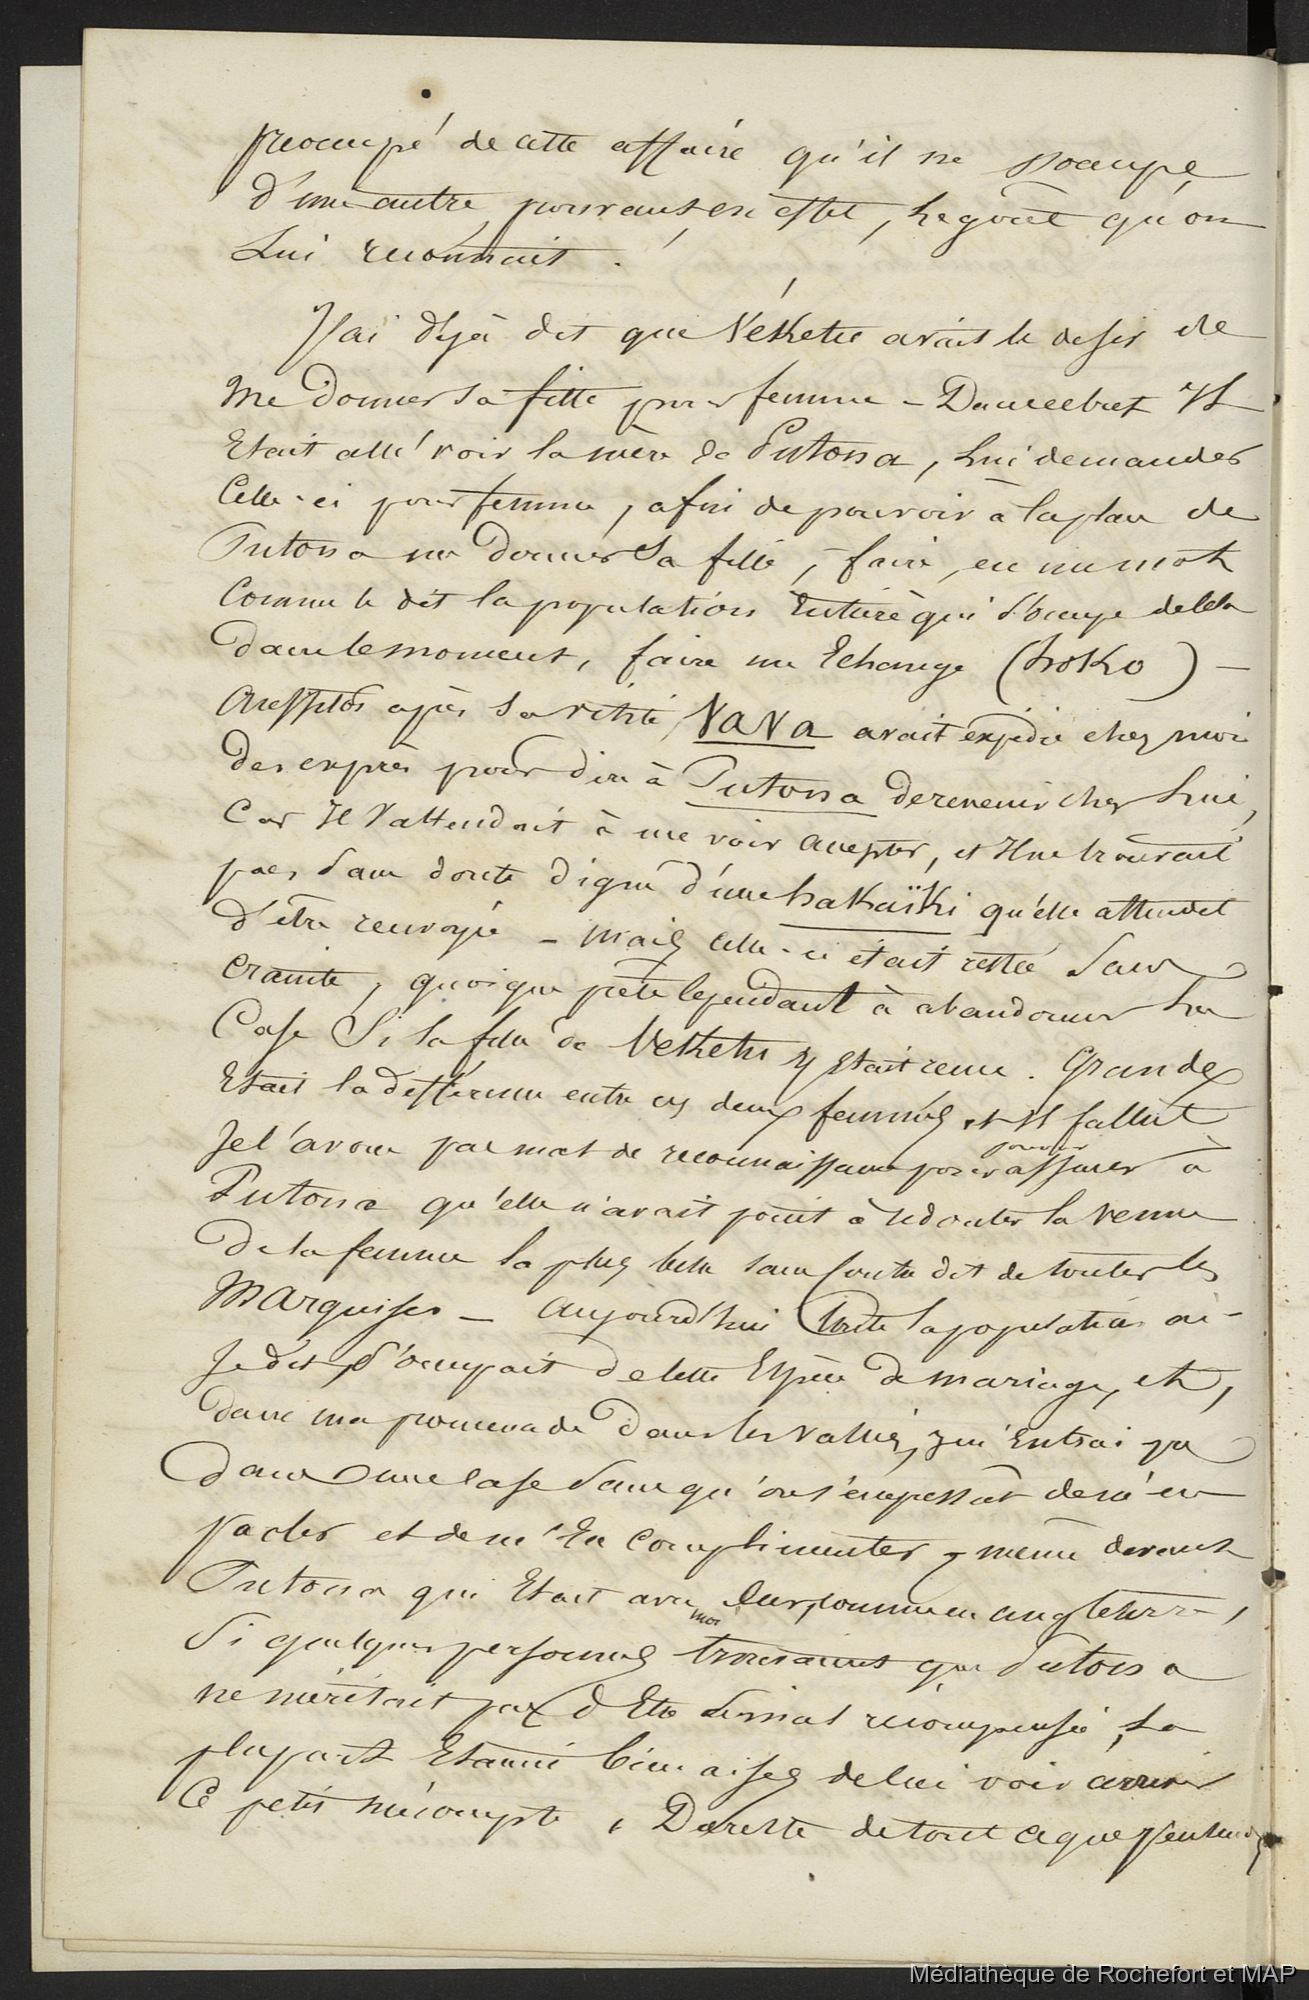 preocupé de cette affaire qu'il ne s'ocupe
d'une autre, poursuivant, en effet, le goût qu'on
Lui reconnait.
J'ai déjà dit que Véketu avait le desir de
me donner sa fille pour femme – Dans ce but Il
Etait allé voir la mère de Putona, Lui demander
Celle-ci pour femme, afin de pouvoir à la place de
Putona me donner sa fille, faire, en un mot
Comme le dit la population Entière qui s'ocupe de cela
dans le moment, faire un Echange (hoko) –
Aussitôt après sa visite VaVa avait expédié chez moi
des exprès pour dire à Putona de revenir chez Lui,
Car Il s'attendait à me voir accepter, et Il ne trouvait
pas sans doute digne d'une hakaïki qu'elle attendit
d'être renvoyée – mais celle-ci était restée sans
crainte, quoique prête cependant à abandonner la
Case Si la fille de Veketu y était venue. Grande
Etait la différence entre ces deux femmes, et Il fallut
Je l'avoue pas mal de reconnaissance pour pouvoir assurer à
Putona qu'elle n'avait point à redouter la venue
de la femme la plus belle sans contre dit de toutes les
Marquises – Aujourd'hui toute la population ai-
Je dit, s'ocupait de cette Espèce de mariage, et,
dans ma promenade dans les vallées, je n'Entrai pas
dans une case sans qu'on s'empressât de m'en
parler et de m'En complimenter, même devant
Putona qui Etait avec moi
Si quelques personnes trouvaient que Putona
ne méritait pas d'Etre si mal récompensée, La
plupart Etaient bien aises de lui voir arriver
Ce petit mécompte, Du reste de tout ce que j'entendis
Médiathèque de Rochefort et MAP